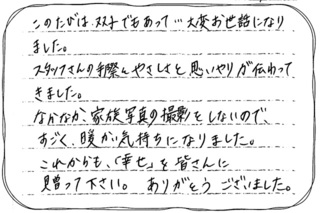 このたびは、双子でもあって…大変お世話になり
ました。
スタッフさんの手際とやさしさと思いやりが伝わって
きました。
なかなか家族写真の撮影をしないので、
すごく、暖かい気持ちになりました。
これからも、「幸せ」を皆さんに
贈って下さい。 ありがとう ございました。